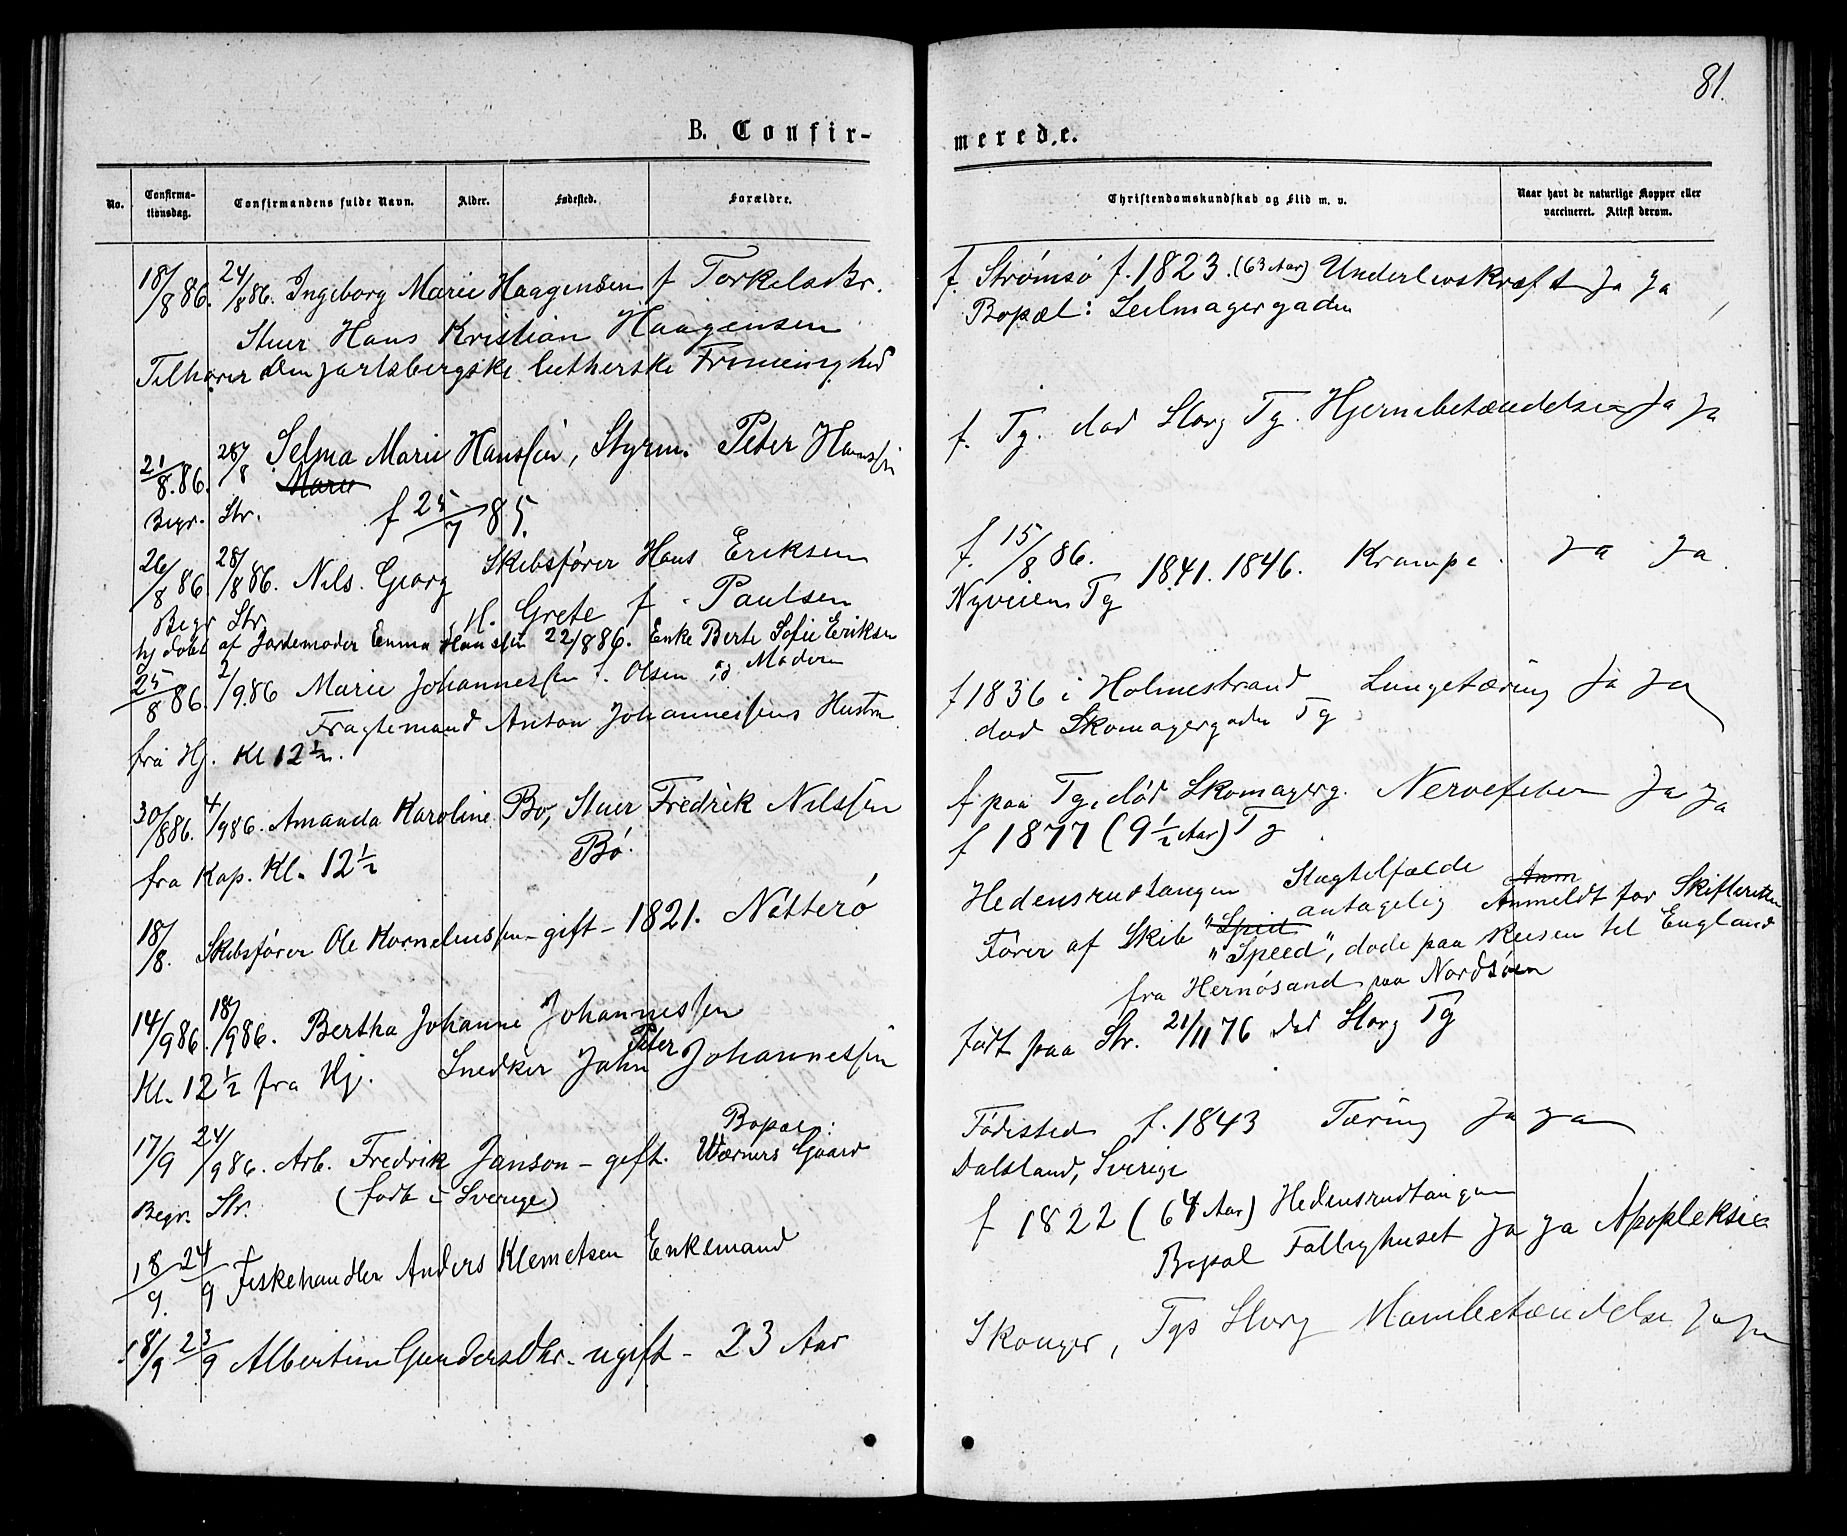 81.
B. Confir-
merede.
No.
Confirma-
tionsdag.
Confirmandens fulde Navn.
Alder.
Fødested.
Forældre.
Christendomskundskab og Flid m. v.
Naar havt de naturlige Kopper eller
vaccineret. Attest derom.
18/8 86. 24/8 86. Ingeborg Marie Haagensen f Torkelsdtr.
Stuer Hans Kristian Haagensen
Tilhører den jarlsbergske lutherske Frimenighed
f. Strømsø f. 1823. (63 Aar) Underlivskræft Ja Ja
Bopæl: Seilmagergaden
21/8. 86. 28/8 Selma Marie Hanssen, Styrm. Peter Hanssen
Marie
Begr. Str. f 25/7 85.
f. Tg. død Storg Tg. Hjernebetændelse Ja Ja
26/8 86. 28/8 86. Nils Georg Skibsfører Hans Eriksen
Begr Str. H. Grete f. Paulsen
hj døbt af Jordemoder Emma Hanssen 22/8 86. Enke Berte Sofie Eriksen
og Moderen
f. 15/8 86. 1841. 1846. Krampe. Ja Ja
Nyveien Tg
25/8 86. 2/9. 86 Marie Johannessen f. Olsen
Fragtemand Anton Johannessens Hustru
fra Hj. Kl 12 ½.
f 1836 i Holmestrand Lungetæring Ja Ja
død Skomagergaden Tg
30/8 86. 4/9 86. Amanda Karoline Bø, Stuer Fredrik Nilssen
Bø.
fra Kap. Kl. 12 ½
f paa Tg, død Skomagerg. Nervefeber Ja Ja
f 1877 (9 ½ Aar) Tg
18/8. Skibsfører Ole Kornelinssen - gift - 1821. Nøtterø
Hedensrudtangen Slagtilfælde Anm
antagelig Anmeldt for Skifteretten
Fører af Skib "Spid
"Speed", døde paa Reisen til England
fra Hernøsand paa Nordsøen
14/9 86. 18/9 86. Bertha Johanne Johannessen
Kl. 12 ½ fra Kj. Snedker John Peter Johannessen
født paa Str. 21/11 76 død Storg Tg
17/9 24/9 86. Arb. Fredrik Janson - gift. Bopæl:
Wærners Gaard
Begr. Str. (født i Sverige)
Fødested f. 1843 Tæring Ja ja
Dalsland, Sverige
18/9. 24/9 Fiskehandler Anders Klemetsen Enkemand
f 1822 (64 Aar) Hedensrudtangen
Bopæl Fattighuset Ja ja Apopleksie
18/9 23/9 Albertine Gundersdtr. - ugift - 23 Aar
Skouger, Tgs Storg Ja ja